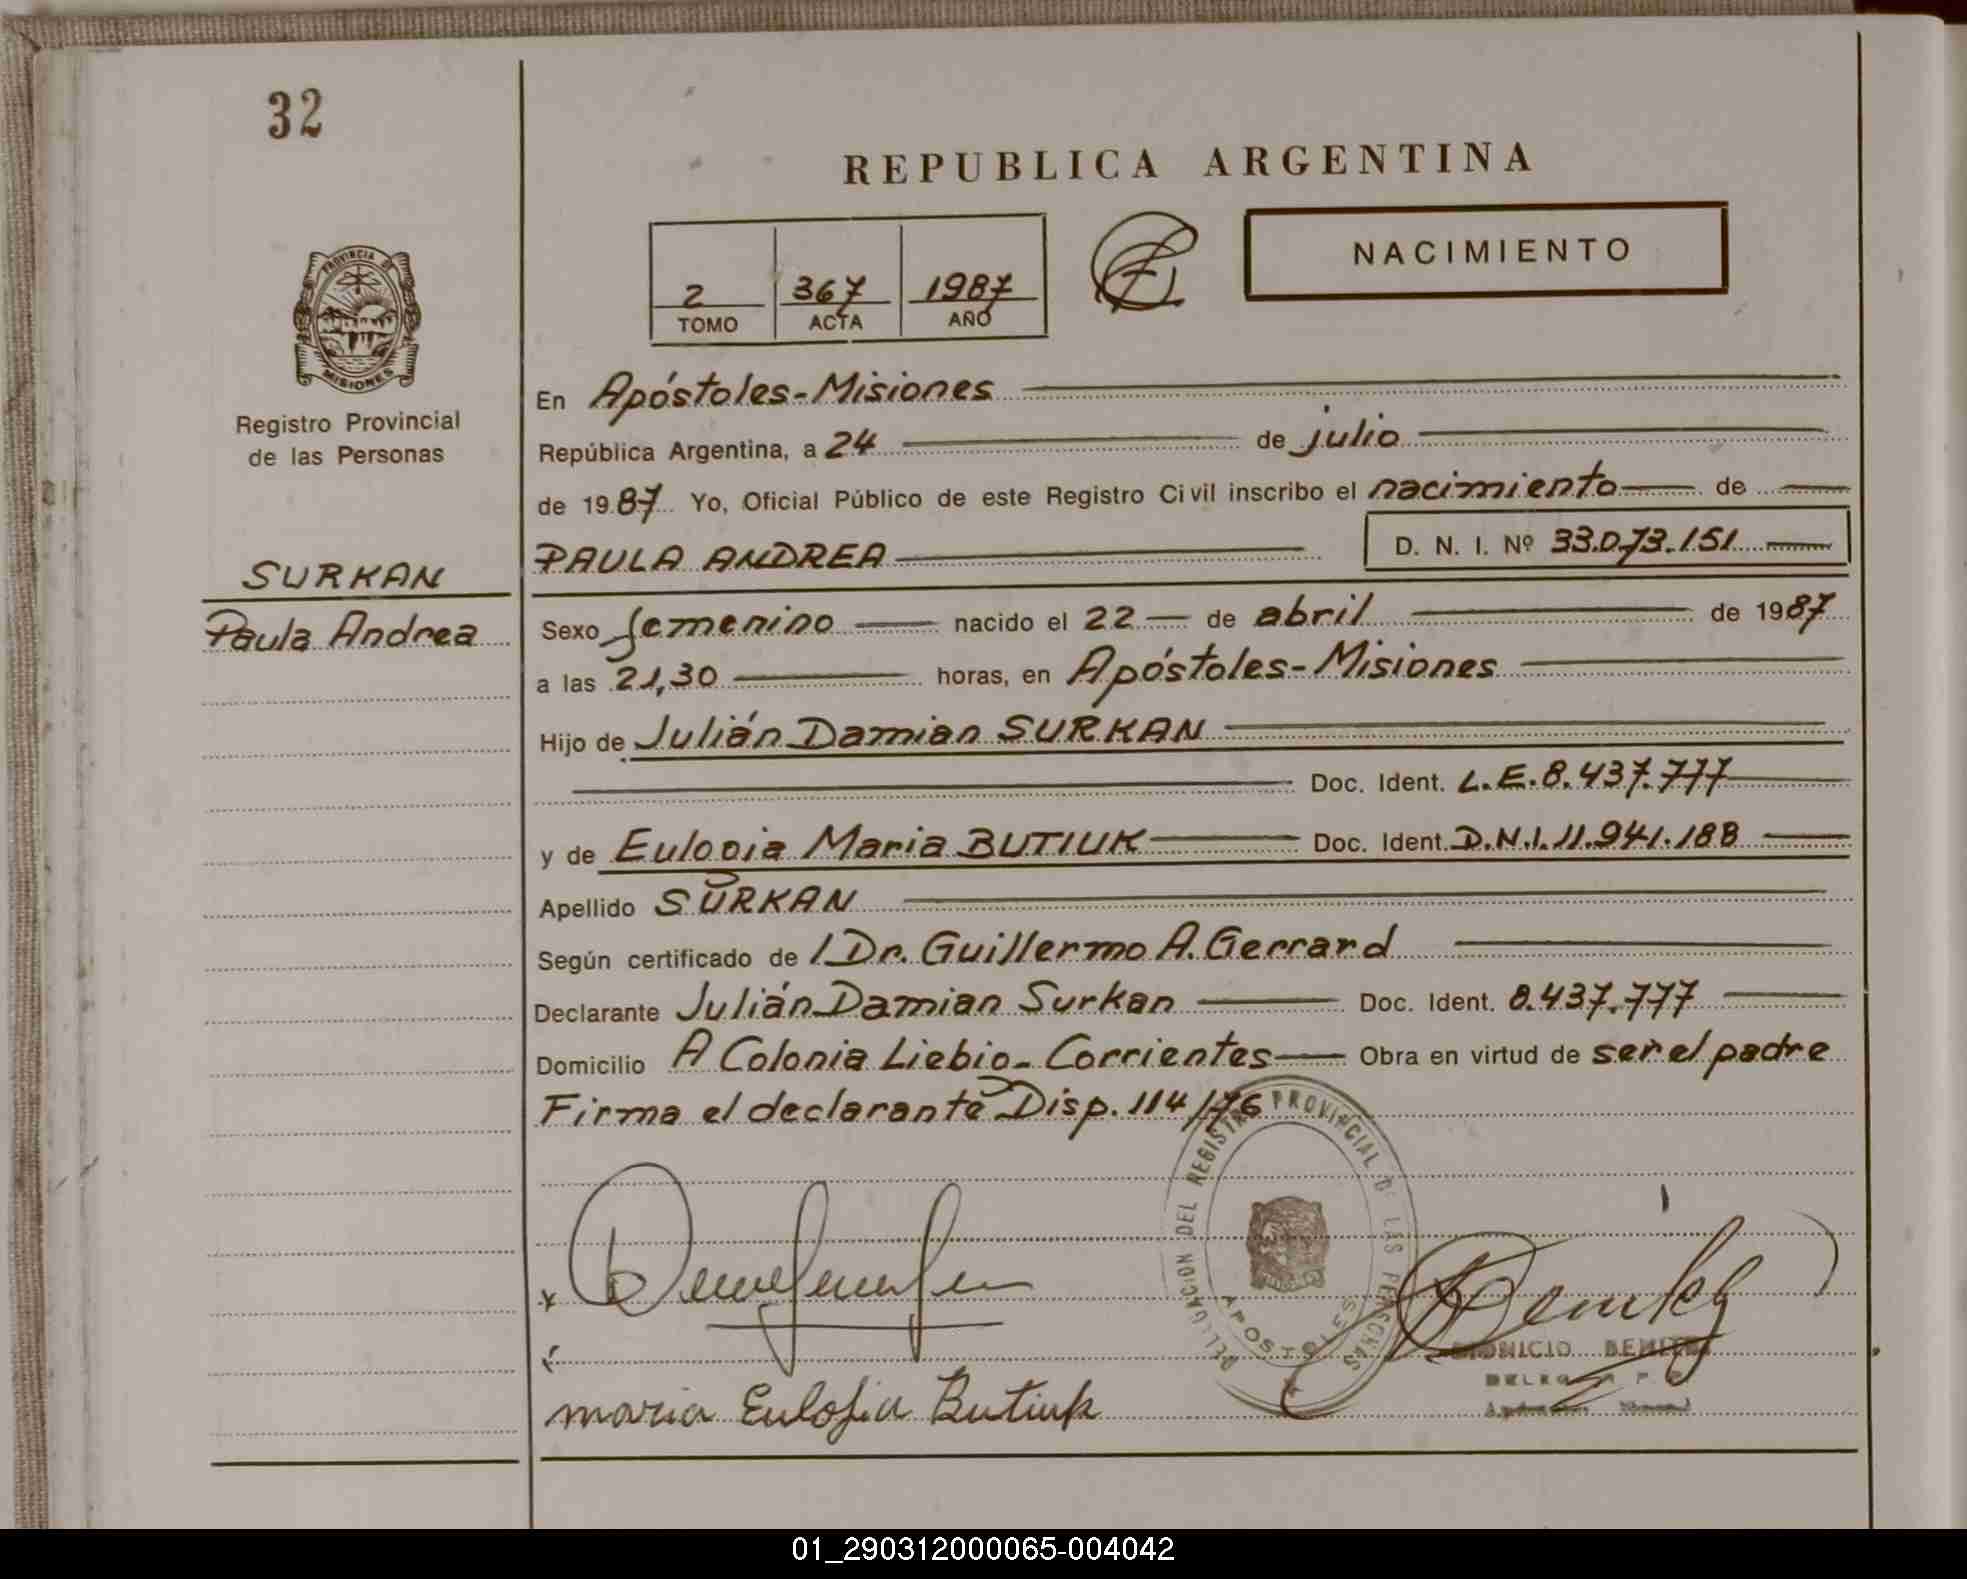 32
REPUBLICA ARGENTINA
2 367 1987
TOMO ACTA AÑO
NACIMIENTO
PROVINCIA DE
MISIONES
Registro Provincial
de las Personas
SURKAN
Paula Andrea
En Apóstoles-Misiones
República Argentina, a 24 de julio
de 1987 Yo, Oficial Público de este Registro Civil inscribo el nacimiento de
PAULA ANDREA D. N. I. Nº 33.073.151
Sexo femenino nacido el 22 de abril de 1987
a las 21,30 horas, en Apóstoles-Misiones
Hijo de Julián Damian SURKAN
Doc. Ident. L.E.8.437.777
y de Maria BUTIUK Doc. Ident. D.N.I.11.941.188
Apellido SURKAN
Según certificado de l Dr. Guillermo A. Gerrard
Declarante Julián Damian Surkan Doc. Ident. 8.437.777
Domicilio A Colonia Liebig- Corrientes Obra en virtud de ser el padre
Firma el declarante Disp. 114/76
DELEGACION DEL REGISTRO PROVINCIAL DE LAS PERSONAS
APOSTOLES
DIONICIO BENITEZ
maria Eulofia Butiuk
01_290312000065-004042